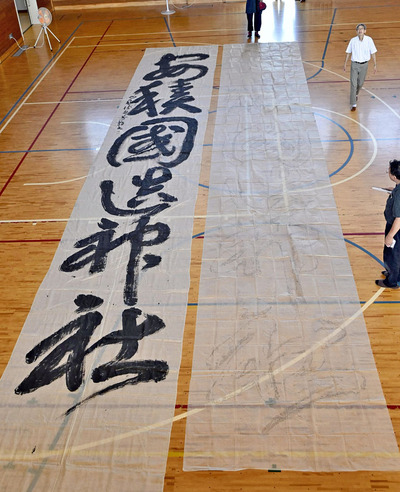 安積國造神社